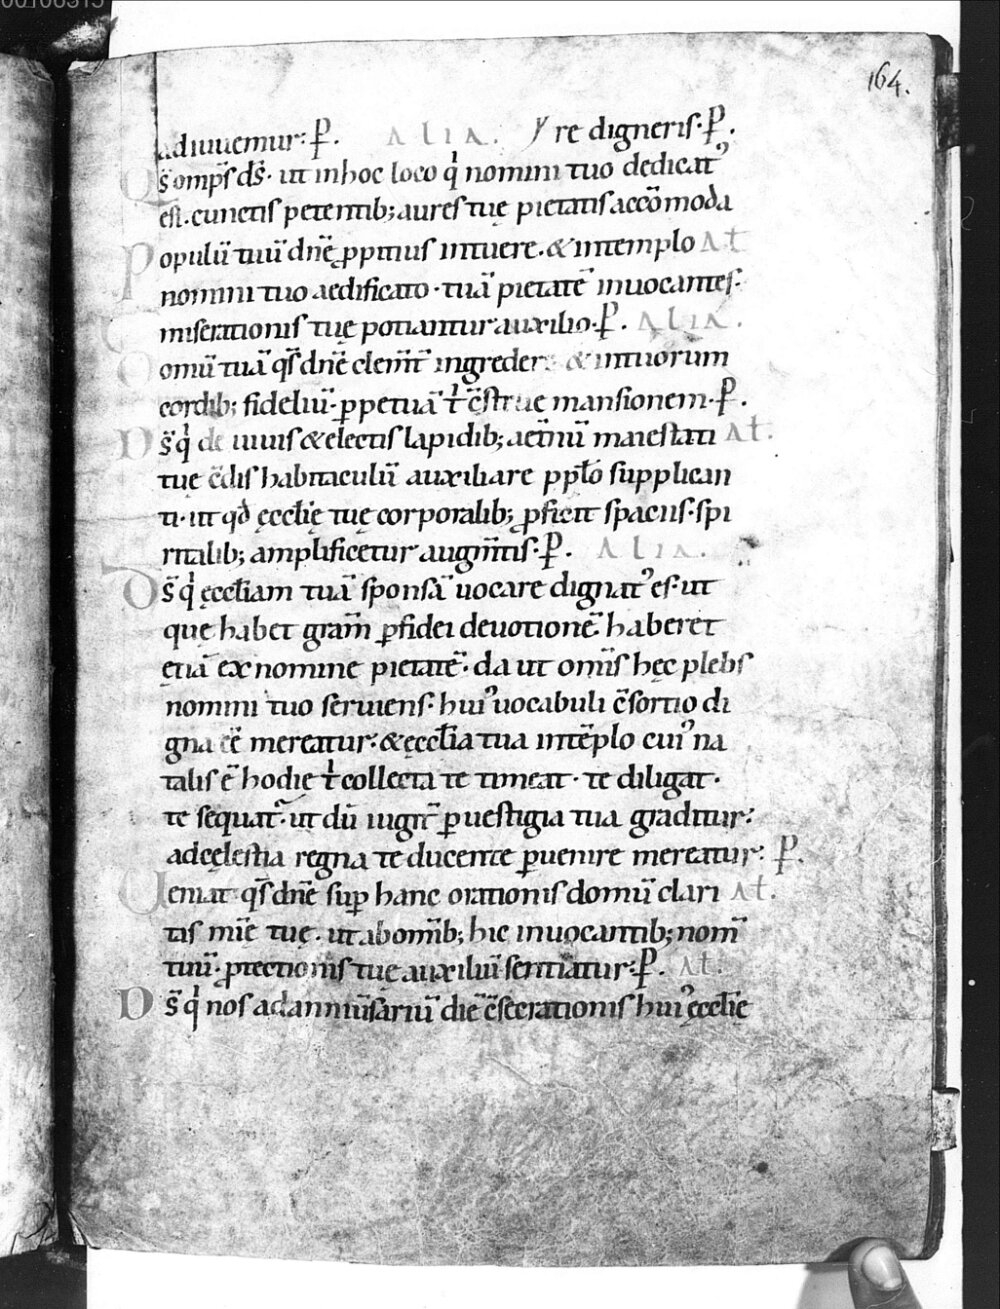 164.
adiuuemur: P̄. ALIA. re digneris· P̄.
Q s̄ omp̄s ds̄· ut in hoc loco qͥ nomini tuo dedicatꝰ
est· cunctis petentib; aures tuę pietatis accōmoda
Populū tuū dn̄e ꝓpitius intuere· & in templo At
nomini tuo aedificato· tuā pietatē inuocantes·
miserationis tuę potiantur auxilio· P̄. ALIA.
Domū tuā qs̄ dn̄e clem̄t̄ ingredere & in tuorum
cordib; fideliū· ꝑpetuā tͥ c̄strue mansionem· P̄.
Ds̄ qͥ de uiuis & electis lapidib; aet̄nū maiestati At.
tuę c̄dis habitaculū auxiliare pplo̅ supplican
ti· ut qd̄ ęccłię tuę corporalib; ꝓficit spaciis· spi
ritalib; amplificetur augm̄tis· P̄. ALIA.
Ds̄ qͥ ęccłiam tuā sponsā uocare dignatꝰ es· ut
quę habet gram̄ ꝓ fidei deuotionē· haberet
etiā ex nomine pietatē· da ut om̄is hęc plebs
nomini tuo seruiens· huiꝰ uocabuli c̄sortio di
gna ēē mereatur· & ęccłia tua in tēplo cuiꝰ na
talis ē hodie tͥ collecta te timeat· te diligat·
te sequat᷑· ut dū iugit̄ ꝑ uestigia tua graditur:
ad cęlestia regna te ducente ꝑuenire mereatur: P̄.
Ueniat qs̄ dn̄e sup̄ hanc orationis domū clari At.
tas mīę tuę· ut ab om̄ib; hic inuocantib; nom̄
tuū· ꝓtectionis tuę auxiliū sentiatur: P̄. At.
Ds̄ qͥ nos ad anniūsariū diē c̄secrationis huiꝰ ęccłię